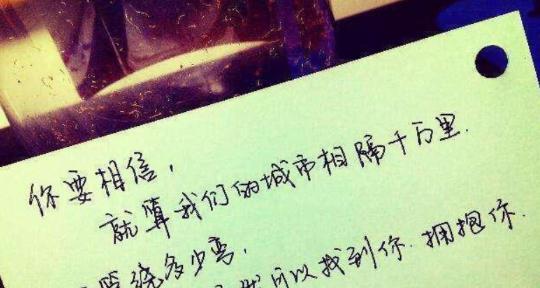 你要相信，
就算我们的城市相隔千万里.
管绕多少弯，
我可以找到你.拥抱你.